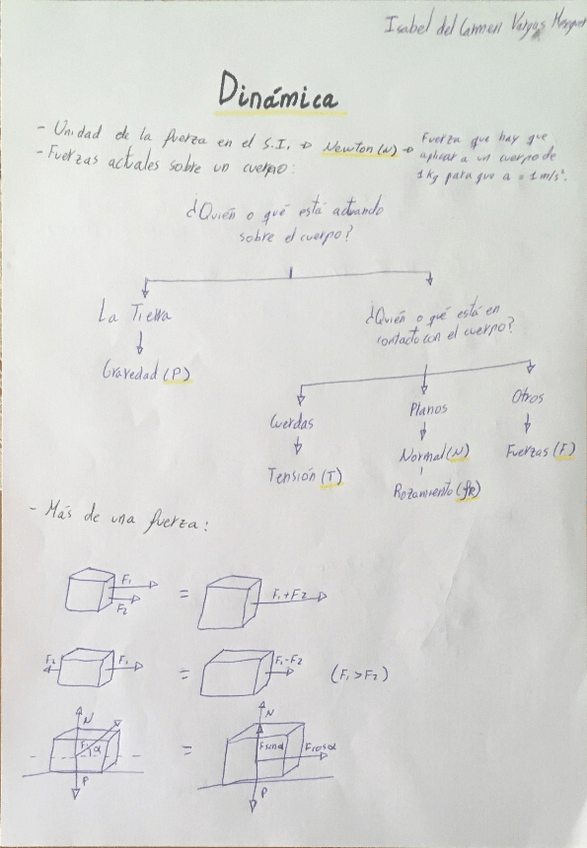 Isabel del Carmen Vargas
Dinámica
- Unidad de la fuerza en el S.I. → Newton (N) → Fuerza que hay que
aplicar a un cuerpo de
1 kg para que a = 1 m/s².
- Fuerzas actuales sobre un cuerpo:
¿Quién o qué está actuando
sobre el cuerpo?
La Tierra
Gravedad (P)
¿Quién o qué está en
contacto con el cuerpo?
Cuerdas
Tensión (T)
Planos
Normal (N)
Rozamiento (fR)
Otros
Fuerzas (F)
- Más de una fuerza:
F1
F2
=
F1+F2
F2
F1
=
F1-F2
(F1>F2)
N
F
α
P
=
N
Fsinα
Fcosα
P